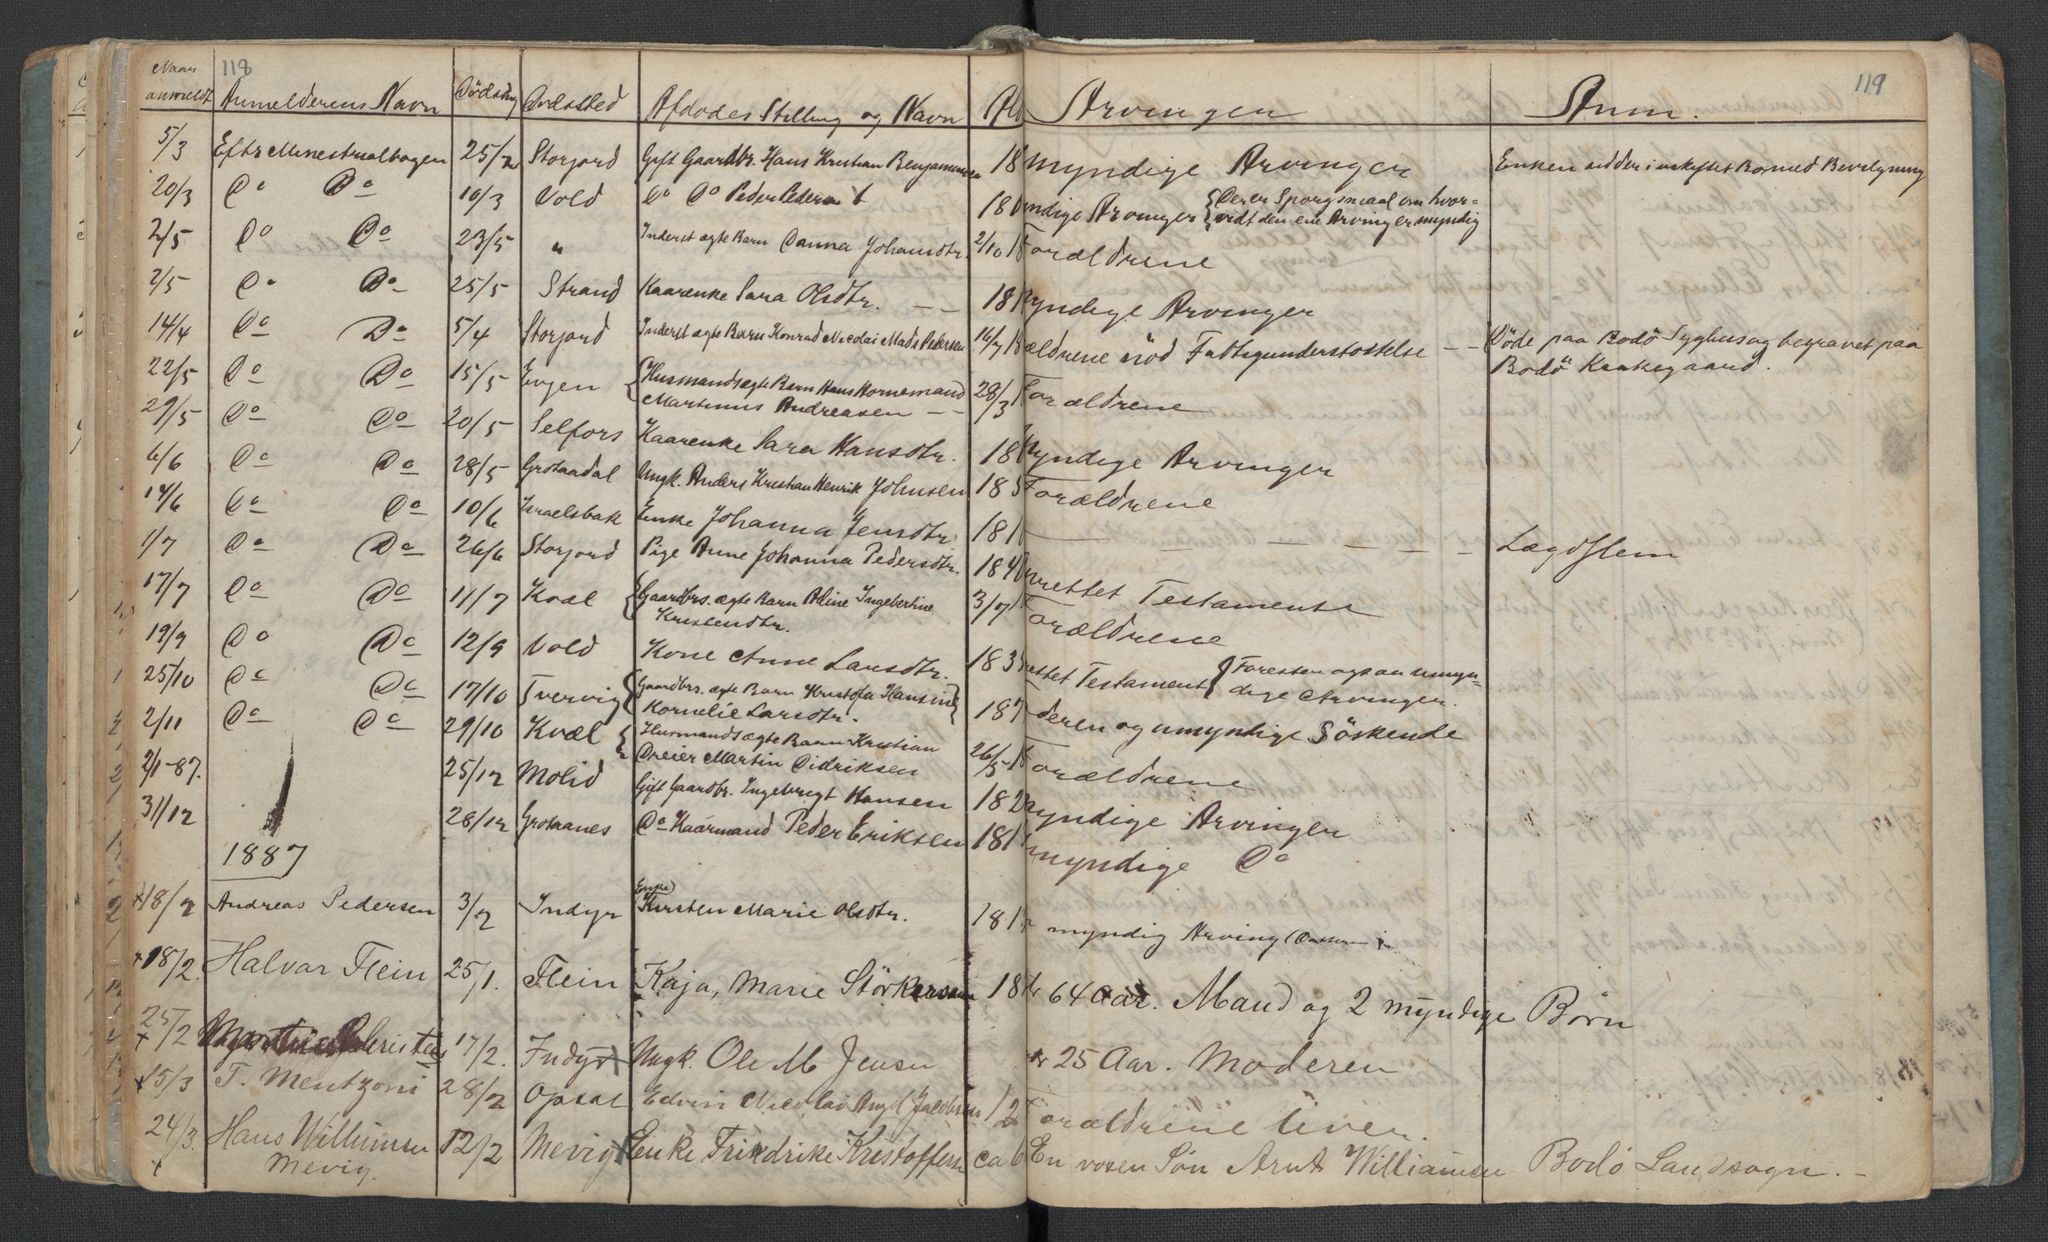 118
119
Naar anmeldt Anmelderens Navn Dödsdag Dödsted Afdødes Stilling og Navn Arvinger Anm.
5/3 Eftr Minestrialbogen 25/2 Storjord Gift Gaardbr. Hans Kristian Benjaminsen 18 myndige Arvinger Enken sidder i uskiftet Bo med Bevilgning
20/3 Do Do 10/3 Vold Do Do Peder Pedersen 18 ndige Arvinger { Der er Sporgsmaal om hvor-
vidt den ene Arving er myndig
2/5 Do Do 23/5 " Inderst ægte Barn Danna Johansdtr. 2/10 18 Forældrene
2/5 Do Do 25/5 Strand Kaarenke Sara Olsdtr. — — 18 myndige Arvinger
14/4 Do Do 5/4 Storjord Inderst ægte Barn Konrad Nicolai Mads Pedersen 16/7 18 ældrene nöd Fattigunderstøttelse — — Döde paa Bodö Syghus og begravet paa
Bodö Kirkegaard.
22/5 Do Do 15/5 Evjen { Husmands ægte Barn Hans Hornemand
Martinus Andreasen — — 28/3 Forældrene
29/5 Do Do 20/5 Selfors Kaarenke Sara Hansdtr. 18 myndige Arvinger
6/6 Do Do 28/5 Grotaadal Ungk. Anders Kristian Henrik Johnsen 185 Forældrene
14/6 Do Do 10/6 Israelsbak Enke Johanna Jensdtr 181 — — — — — — — Lægdslem
1/7 Do Do 26/6 Storjord Pige Anne Johanna Pedersdtr. 184 rettet Testamente
17/7 Do Do 11/7 Kvæl { Gaardbrs. ægte Barn Aline Ingebertine
Kristendtr. 3/7 Forældrene
19/9 Do Do 12/9 Vold Kone Anne Larsdtr. 183 ettet Testament { Foresten ogsaa umyn-
dige Arvinger.
25/10 Do Do 17/10 Tvervig { Gaardbrs. ægte Barn Kristofa Hansine }
Kornelie Larsdtr. 187 deren og umyndige Söskende
2/11 Do Do 29/10 Kvæl { Husmands ægte Barn Kristian
Dreier Martin Didriksen 26/5 18 Forældrene
2/1-87. 25/12 Molid Gift Gaardbr. Ingebrigt Hansen 182 myndige Arvinger
31/12 28/12 Grotaanes Do Kaarmand Peder Eriksen 181 myndige Do
1887
+18/2 Andreas Pedersen 3/2 Indyr Enke Kirsten Marie Olsdtr. 181 myndig Arving
+18/2. Halvar Flein 25/1. Flein Kaja, Marie Störkersen 18 64 Aar. Mand og 2 myndige Börn
25/2 + 17/2. Indyr + Ungk. Ole M Jensen 25 Aar. Moderen
+15/3 T. Mentzoni 28/2 Opsal Edvin Nicolai Angel Jacobsen 12 Forældrene lever.
24/3. + Hans Williumsen 12/2 Mevig Enke Fredrike Kristoffersen ca 6 En voxen Søn Arnt Williamsen Bodö Landsogn. —
Mevig.